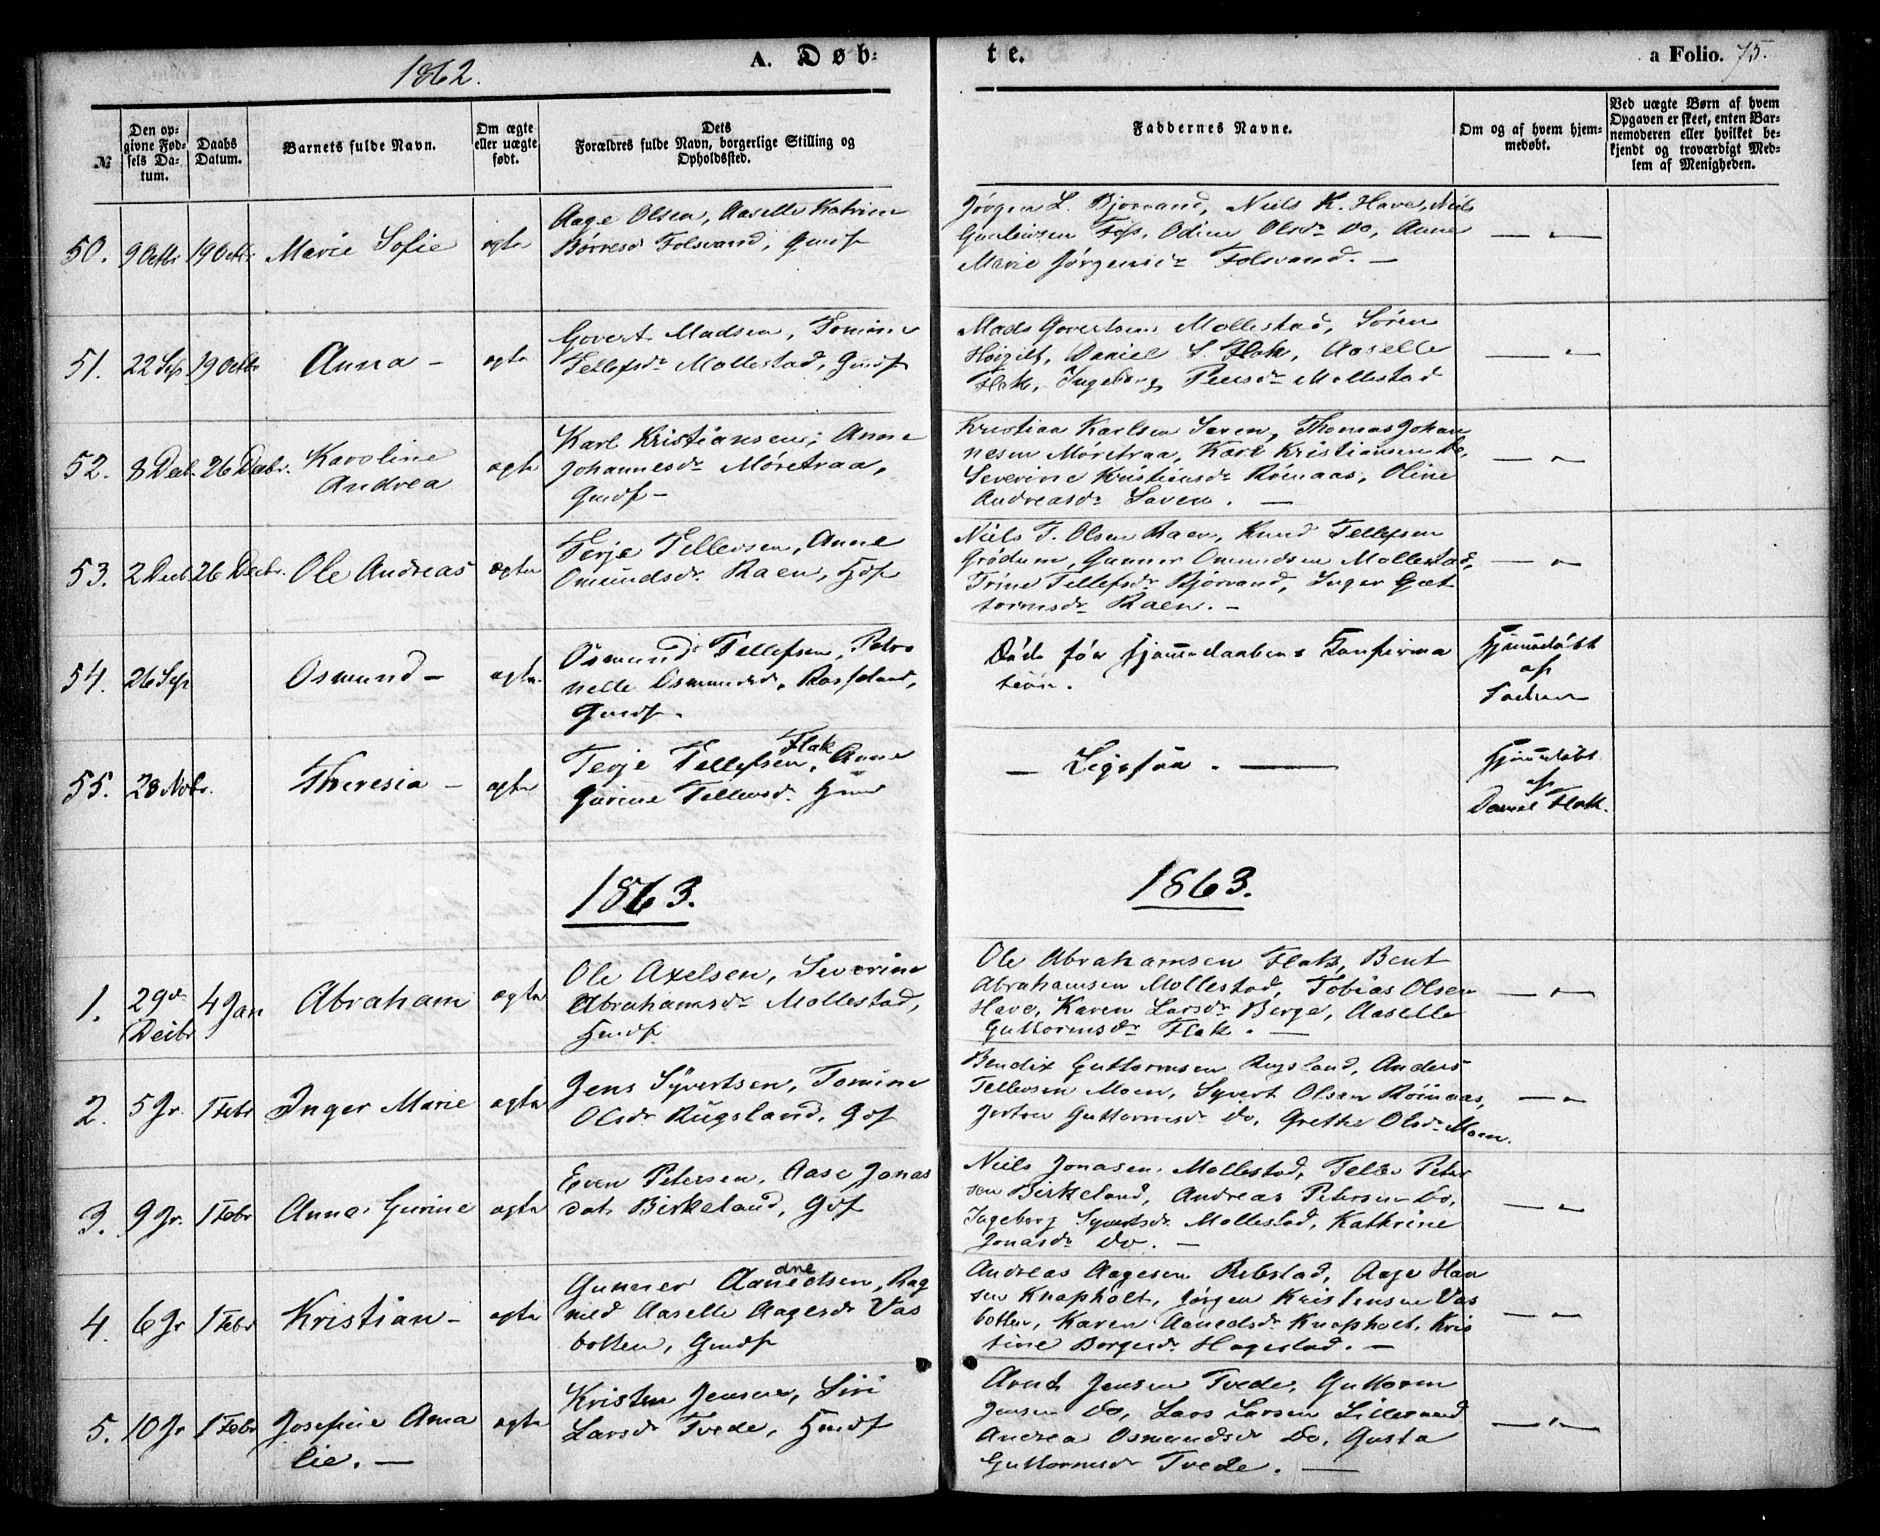 1862.
A. Døb-
te.
a Folio. 75.
№
Den op-
givne Fød-
sels Da-
tum.
Daabs
Datum.
Barnets fulde Navn.
Om ægte
eller uægte
født.
Dets
Forældres fulde Navn, borgerlige Stilling og
Opholdssted.
Faddernes Navne.
Om og af hvem hjem-
medøbt.
Ved uægte Børn af hvem
Opgaven er skeet, enten Bar-
nemoderen eller hvilket be-
kjendt og troværdigt Med-
lem af Menigheden.
50. 9 Octbr 19 Octbr Marie Sofie ægte
Aage Olsen, Aaselle Katrine
Børresdr Folsvand, Gmdf
Jørgen L. Bjorvand, Niels K. Have, Niels
Guntensen Odine Olsdr Do, Anne
Marie Jørgensdr Folsvand. —
— " —
51. 22 Sep 19 Octbr Anna — ægte
Govert Madsen, Tomine
Tellefsdr Mollestad, Gmdf
Mads Govertsen Mollestad, Søren
Høigilt, Daniel S. Flak, Aaselle
Flak, Ingeborg Peersdr Mollestad
— " —
52. 8 Decb. 26 Decbr. Karoline
Andrea ægte
Karl Kristiansen, Anne
Johannesdr Møretraa,
Gmdf —
Kristian Karlsen Saven, Thomas Johan
nesen Møretraa, Karl Kristiansen Do,
Severine Kristiensdr Røinaas, Oline
Andreasdr Saven. —
— " —
53. 2 Decb 26 Decbr. Ole Andreas ægte
Terje Tellevsen, Anne
Omundsdr Raen, Hdf
Niels T. Olsen Raen, Knud Tellefsen
Grødum, Gunner Omundsen Mollestad,
Trine Tellefsdr Bjorvand, Inger Gut
tormsdr Raen. —
— " —
54. 26 Sep Osmund — ægte.
Osmund Tellefsen, Petro
nelle Osmundsd. Rosseland,
Gmdf.
Død før Hjemmedaabens Konfirma
tion.
Hjemmedøbt
af
Faderen
55. 28 Novbr. Theresia — ægte
Terje Tellefsen Flak, Anne
Gurine Tellevsdr. Hmd
— Ligesaa. —
Hjemmedøbt
af
Daniel Flak.
1863.
1863.
1. 29de
Decbr 4 Jan Abraham ægte
Ole Axelsen, Severine
Abrahamsdr Mollestad,
Hmdf
Ole Abrahamsen Flak, Bent
Abrahamsen Mollestad, Tobias Olsen
Have, Karen Larsdr Berge, Aaselle
Guttormsdr Flak. —
— " —
2. 5 Jr. 1 Febr Inger Marie ægte
Jens Syvertsen, Tomine
Olsdr Rugsland, Gdf
Bendix Guttormsen Rugsland, Anders
Tellevsen Moen, Syvert Olsen Røinaas,
Guttormsdr Do, Grethe Olsdr Moen.
— " —
3. 9 Jr. 1 Febr Anne Gurine ægte
Even Petersen, Aase Jonas
datr Birkeland, Gdf
Niels Jonasen Mollestad, Tellef Peter
sen Birkeland, Andreas Petersen Do,
Ingeborg Syvertsdr Mollestad, Kathrine
Jonasdr Do. —
— " —
4. 6 Jr 1 Febr Kristian — ægte
dne
Gunner Aanedsen, Rag
nild Aaselle Aagesdr Vas
botten, Gmdf
Andreas Aagesen Rebstad, Aage Han
sen Knapholt, Jørgen Kristensen Vas
botten, Karen Aanedsdr Knapholt, Kris
tine Borgesdr Hagestad. —
— " —
5. 10 Jr 1 Febr Josefine Ama
lie. — ægte
Kristen Jensen, Siri
Larsdr Tvede, Hmdf
Arnt Jensen Tvede, Guttorm
Jensen Do, Lars Larsen Lillesand
Andrea Osmundsdr Do, Gusta
Guttormsdr Tvede. —
— " —